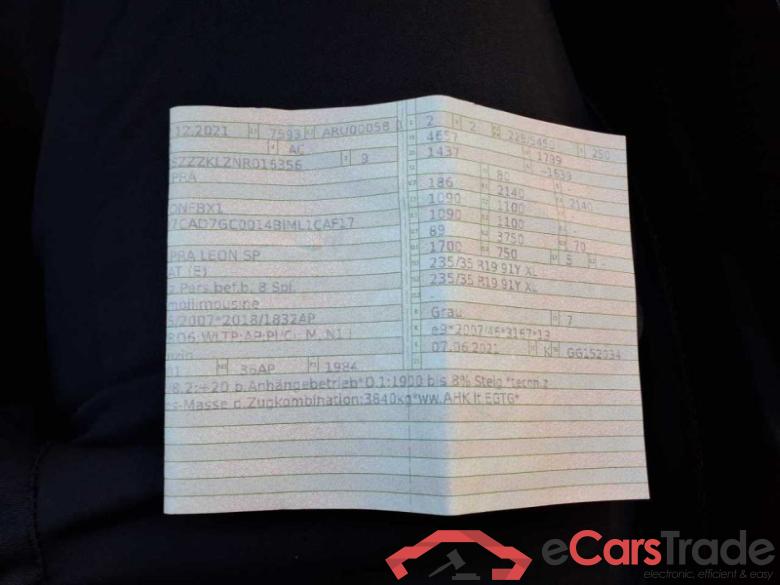 12.2021 7593 ARU00058
AC
SZZZKLZNR015356 9
PRA
ONFBX1
7CAD7GC0014BIML1CAF17
PRA LEON SP
AT (E)
Pers.bef.b. 8 Spl.
limousine
/2007*2018/1832AP
36AP 1984
2 2 228/5450 250
4657 1799
1437 -1639
80 -
186 2140 2140
1090 1100
1090 1100 -
89 3750 70
1700 750 5 -
235/35 R19 91Y XL
235/35 R19 91Y XL
-
Grau 7
e9*2007/46*3167*13
07.06.2021 K GG152034
8.2:+20 b.Anhängebetrieb*O.1:1900 bis 8% Steig.*techn.z
s-Masse d.Zugkombination:3840kg*ww.AHK lt.EGTG*
eCarsTrade
electronic, efficient & easy